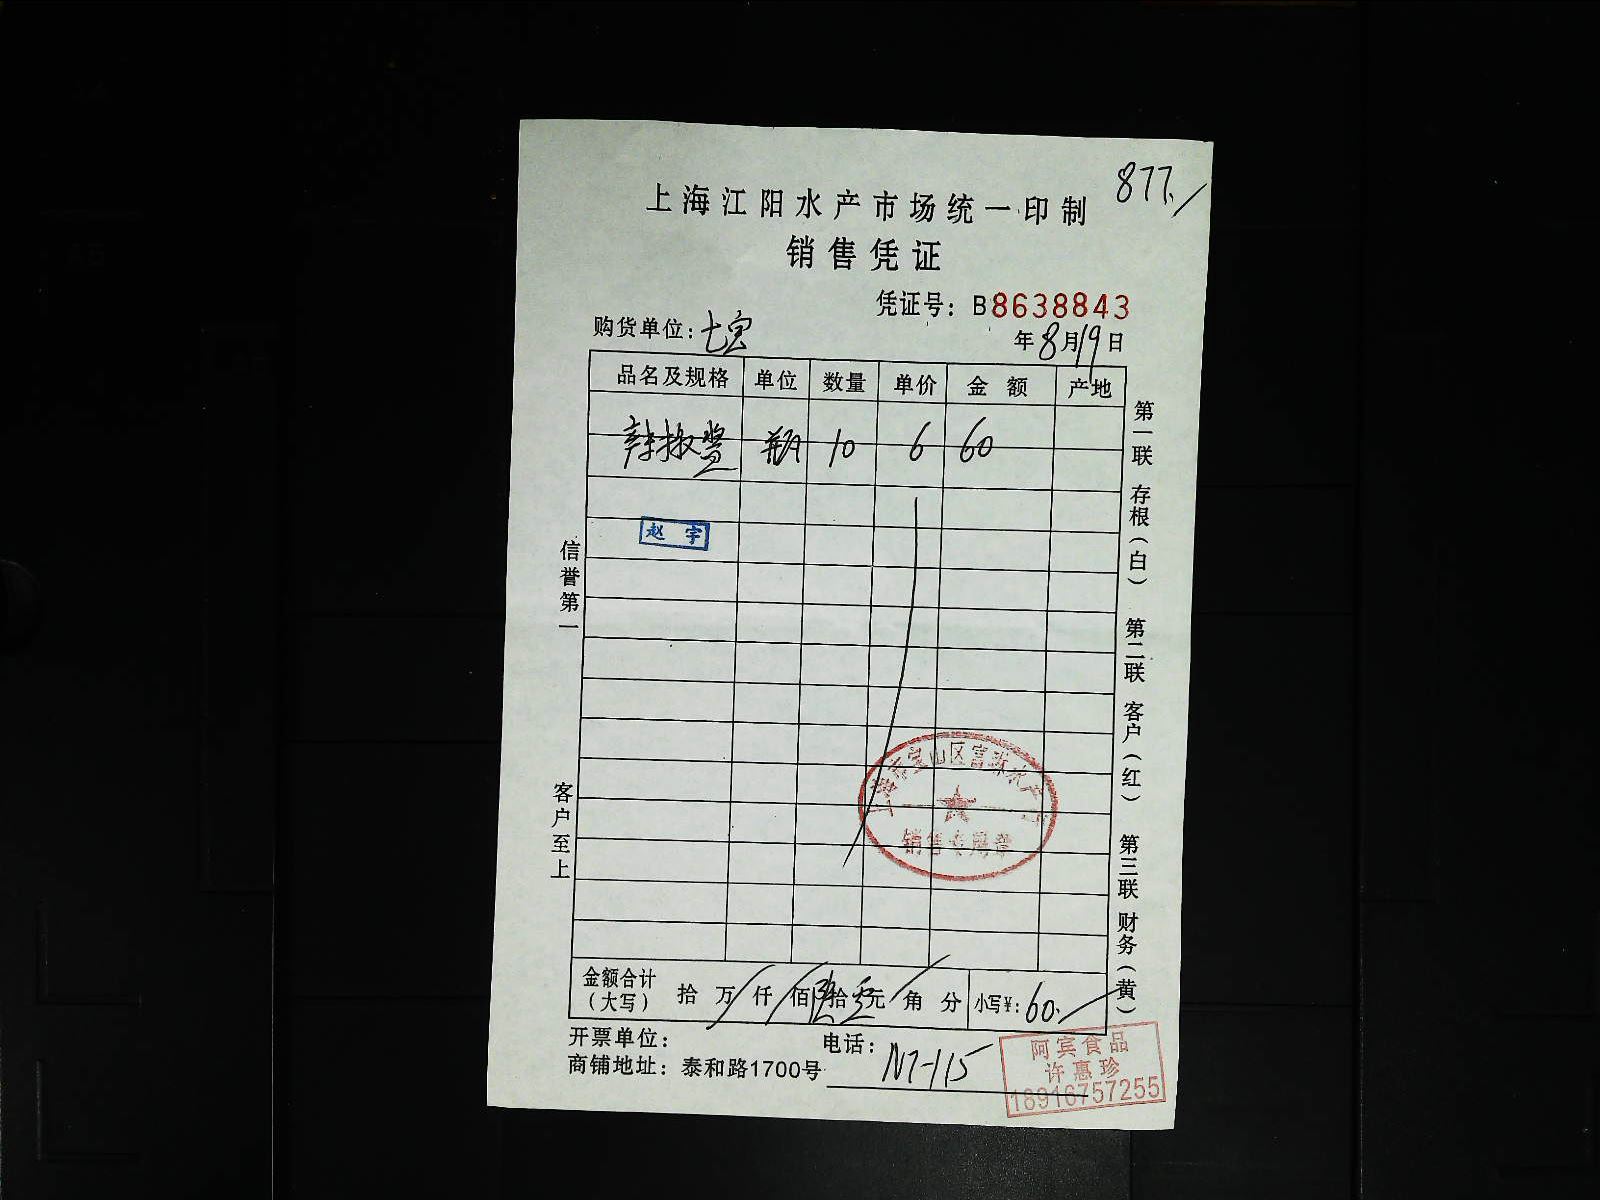 877.
上海江阳水产市场统一印制
销售凭证
凭证号：B8638843
购货单位：七宝
年8月19日
品名及规格 单位 数量 单价 金额 产地
辣椒酱 瓶 10 6 60
赵宇
信誉第一
客户至上
第一联 存根（白） 第二联 客户（红） 第三联 财务（黄）
销售专用章
金额合计（大写） 拾 万 仟 佰 陆 拾 零 元 角 分 小写¥：60.
开票单位： 电话：
商铺地址：泰和路1700号 N7-115
阿宾食品
许惠珍
18916757255